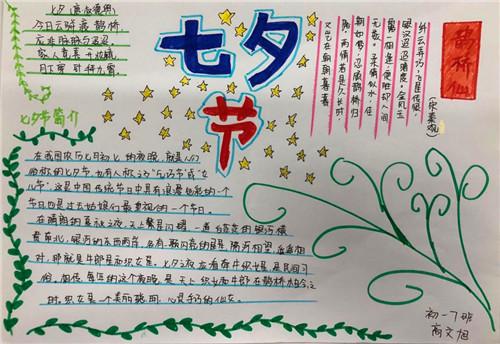 七夕(嵩岳夜思)
今日云骈渡鹊桥,
应非脉脉与迢迢
家人竞喜开妆镜
月下穿针拜九宵
七夕节简介
七夕
节
鹊桥仙
(宋秦观)
纤云弄巧,飞星传恨,
银汉迢迢暗度。金风玉
露相逢,便胜却人间
无数。柔情似水,佳
期如梦,忍顾鹊桥归
路,两情若是久长时,
又岂在朝朝暮暮
在我国农历七月初七的夜晚,就是人们
俗称的七夕节,也有人称之为"乞巧节"或"女
儿节",这是中国传统节日中具有浪漫色彩的一个
节日也是过去姑娘们最重视的一个节日。
在晴朗的夏秋之夜,天上繁星闪耀,一道白茫茫的银河横
贯南北,银河的东西两岸,各有一颗闪亮的星星,隔河相望,遥遥相
对,那就是牵牛星和织女星,七夕之夜坐看牵牛织女星是民间习
俗,相传,每年的这个夜晚,是天上织女和牛郎在鹊桥相会之
时。织女是一个美丽聪明,心灵手巧的仙女。
初一7班
高文旭